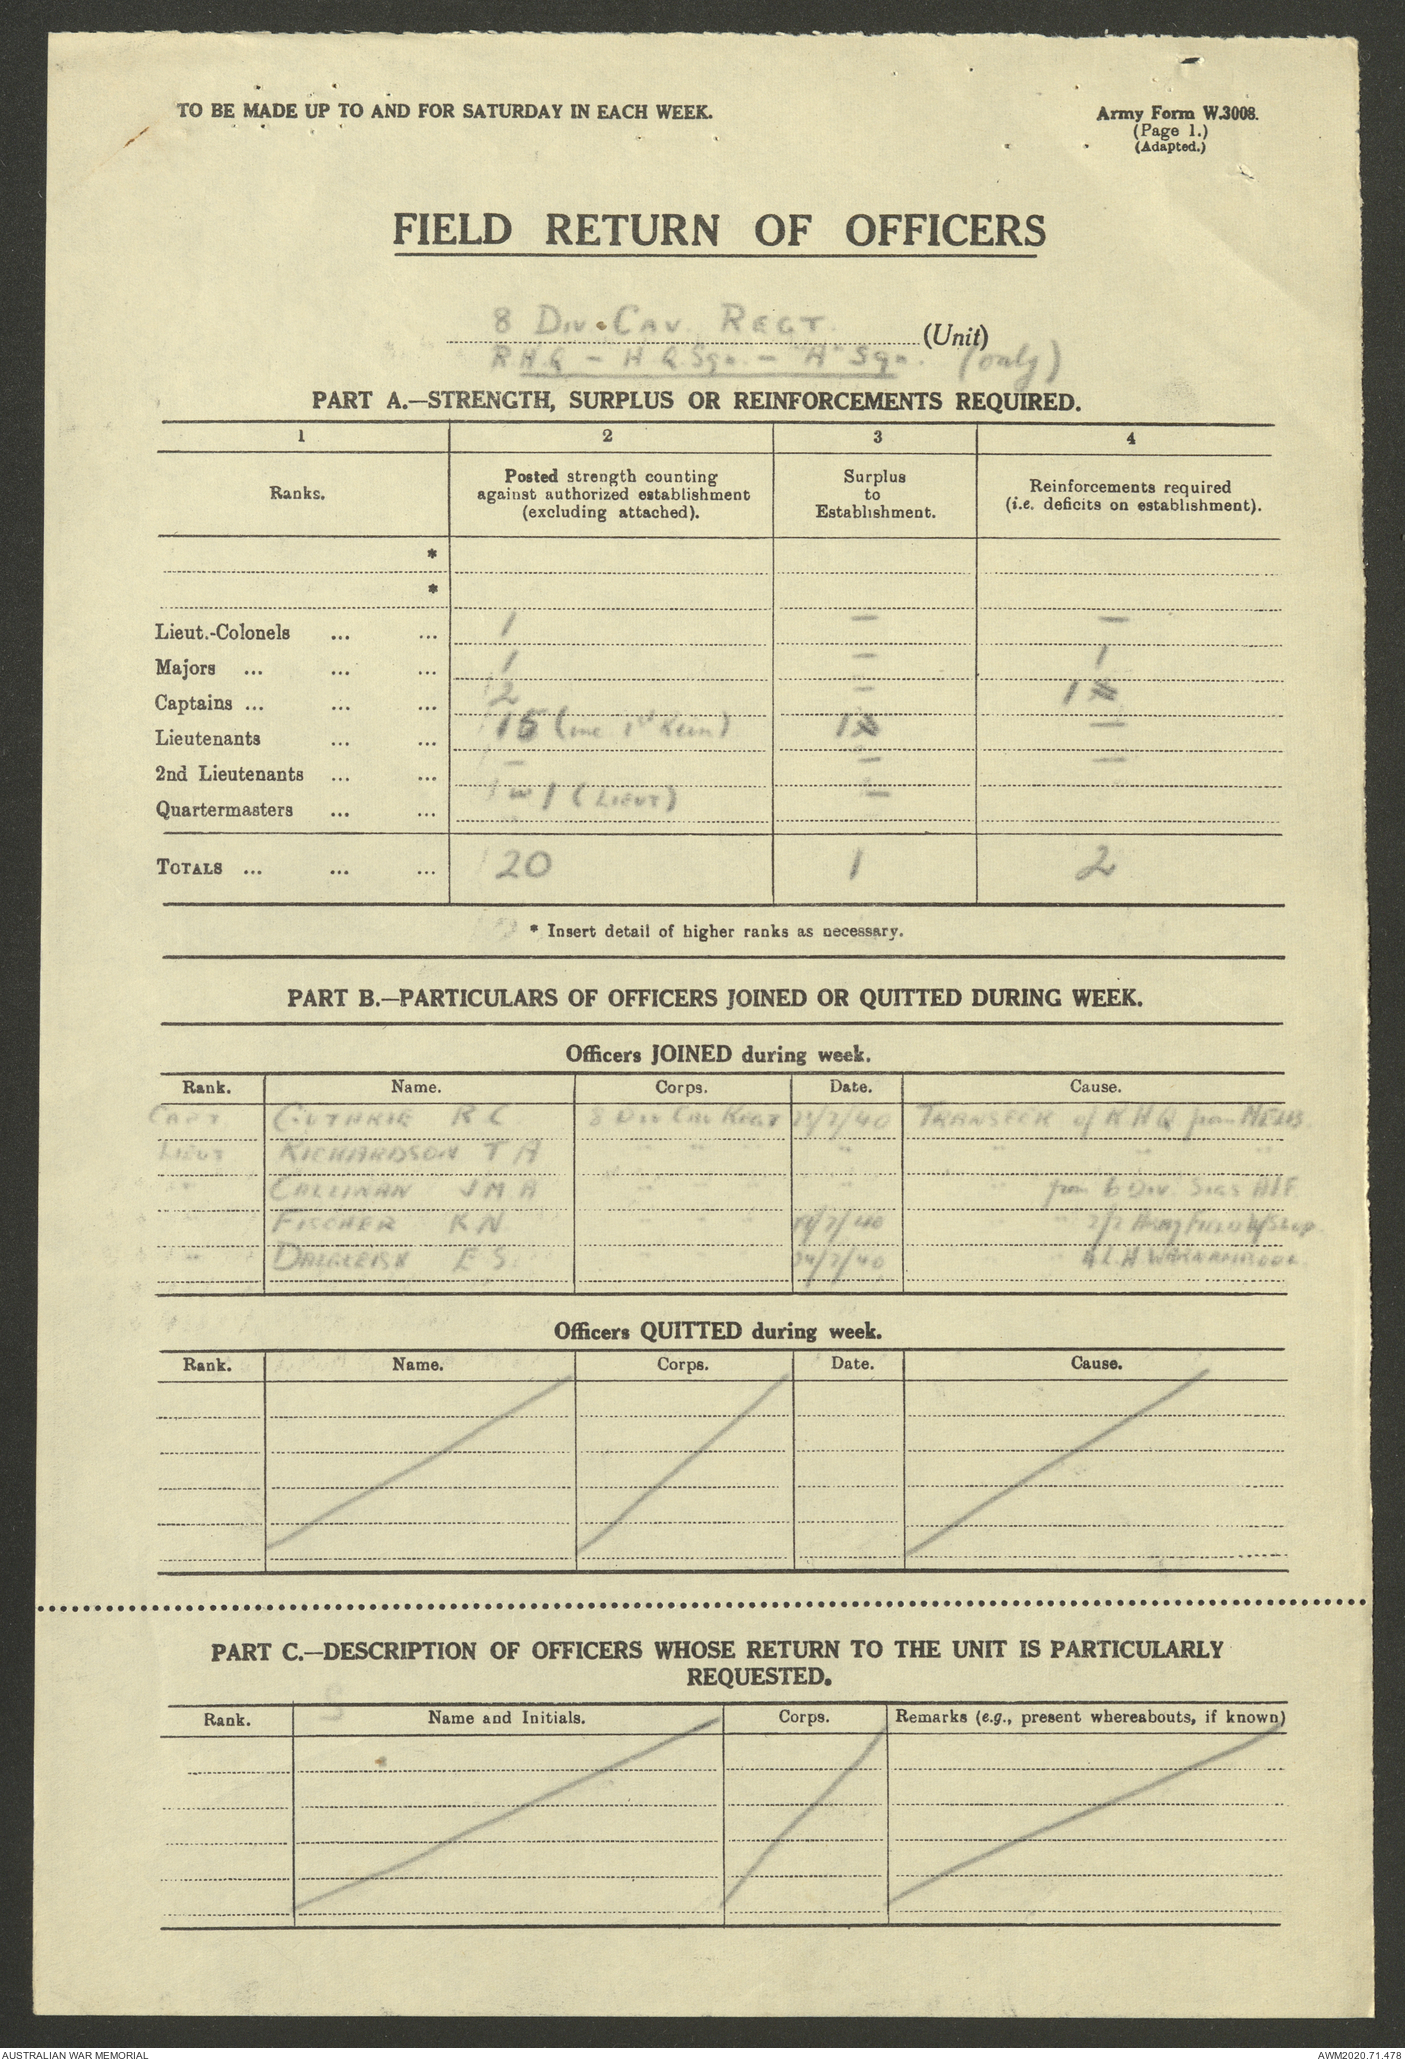 TO BE MADE UP TO AND FOR SATURDAY IN EACH WEEK.
Army Form W.3008.
(Page 1.)
(Adapted.)
FIELD RETURN OF OFFICERS
8 DIV. CAV. REGT. (Unit)
R.H.Q – H.Q. Sqn. – "A" Sqn. (only)
PART A.—STRENGTH, SURPLUS OR REINFORCEMENTS REQUIRED.
1 2 3 4
Ranks. Posted strength counting against authorized establishment (excluding attached). Surplus to Establishment. Reinforcements required (i.e. deficits on establishment).
*
*
Lieut.-Colonels ... ... 1 — —
Majors ... ... ... 1 — 1
Captains ... ... ... 2 — 1
Lieutenants ... ... 15 (inc. 1st Rein) 1 —
2nd Lieutenants ... ... — — —
Quartermasters ... ... 1 (LIEUT) —
TOTALS ... ... ... 20 1 2
* Insert detail of higher ranks as necessary.
PART B.—PARTICULARS OF OFFICERS JOINED OR QUITTED DURING WEEK.
Officers JOINED during week.
Rank. Name. Corps. Date. Cause.
CAPT GUTHRIE R C 8 Div Cav Regt /7/40 TRANSFER of R H Q from
LIEUT RICHARDSON T A " " " " " "
" CALLINAN J M A " " " " " from 6 Div Sigs AIF
" FISCHER K N " " " /7/40 " " 2/2 Army Field W/Shop
" DALGLEISH E S. " " 24/7/40 " 4 L.H WARRNAMBOOL
Officers QUITTED during week.
Rank. Name. Corps. Date. Cause.
PART C.—DESCRIPTION OF OFFICERS WHOSE RETURN TO THE UNIT IS PARTICULARLY
REQUESTED.
Rank. Name and Initials. Corps. Remarks (e.g., present whereabouts, if known)
AUSTRALIAN WAR MEMORIAL
AWM2020.71.478